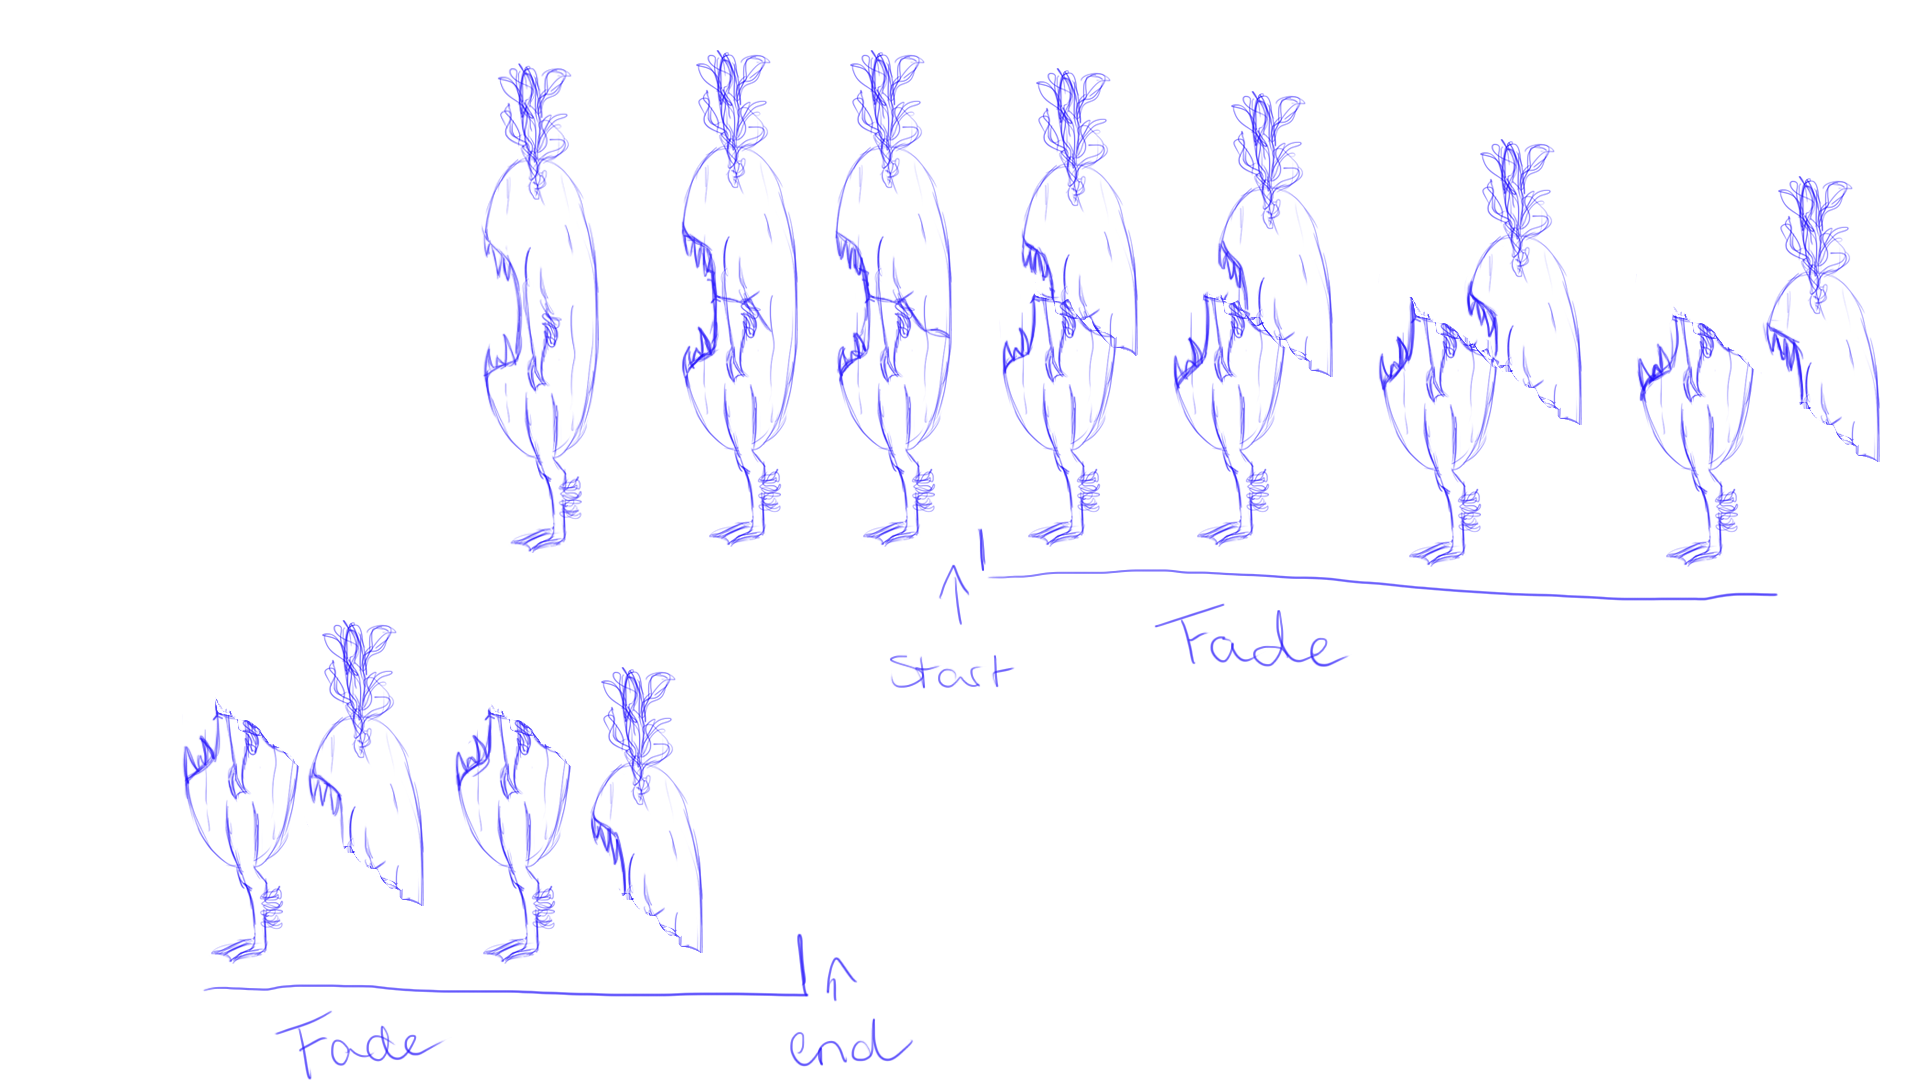 Start
Fade
Fade
end